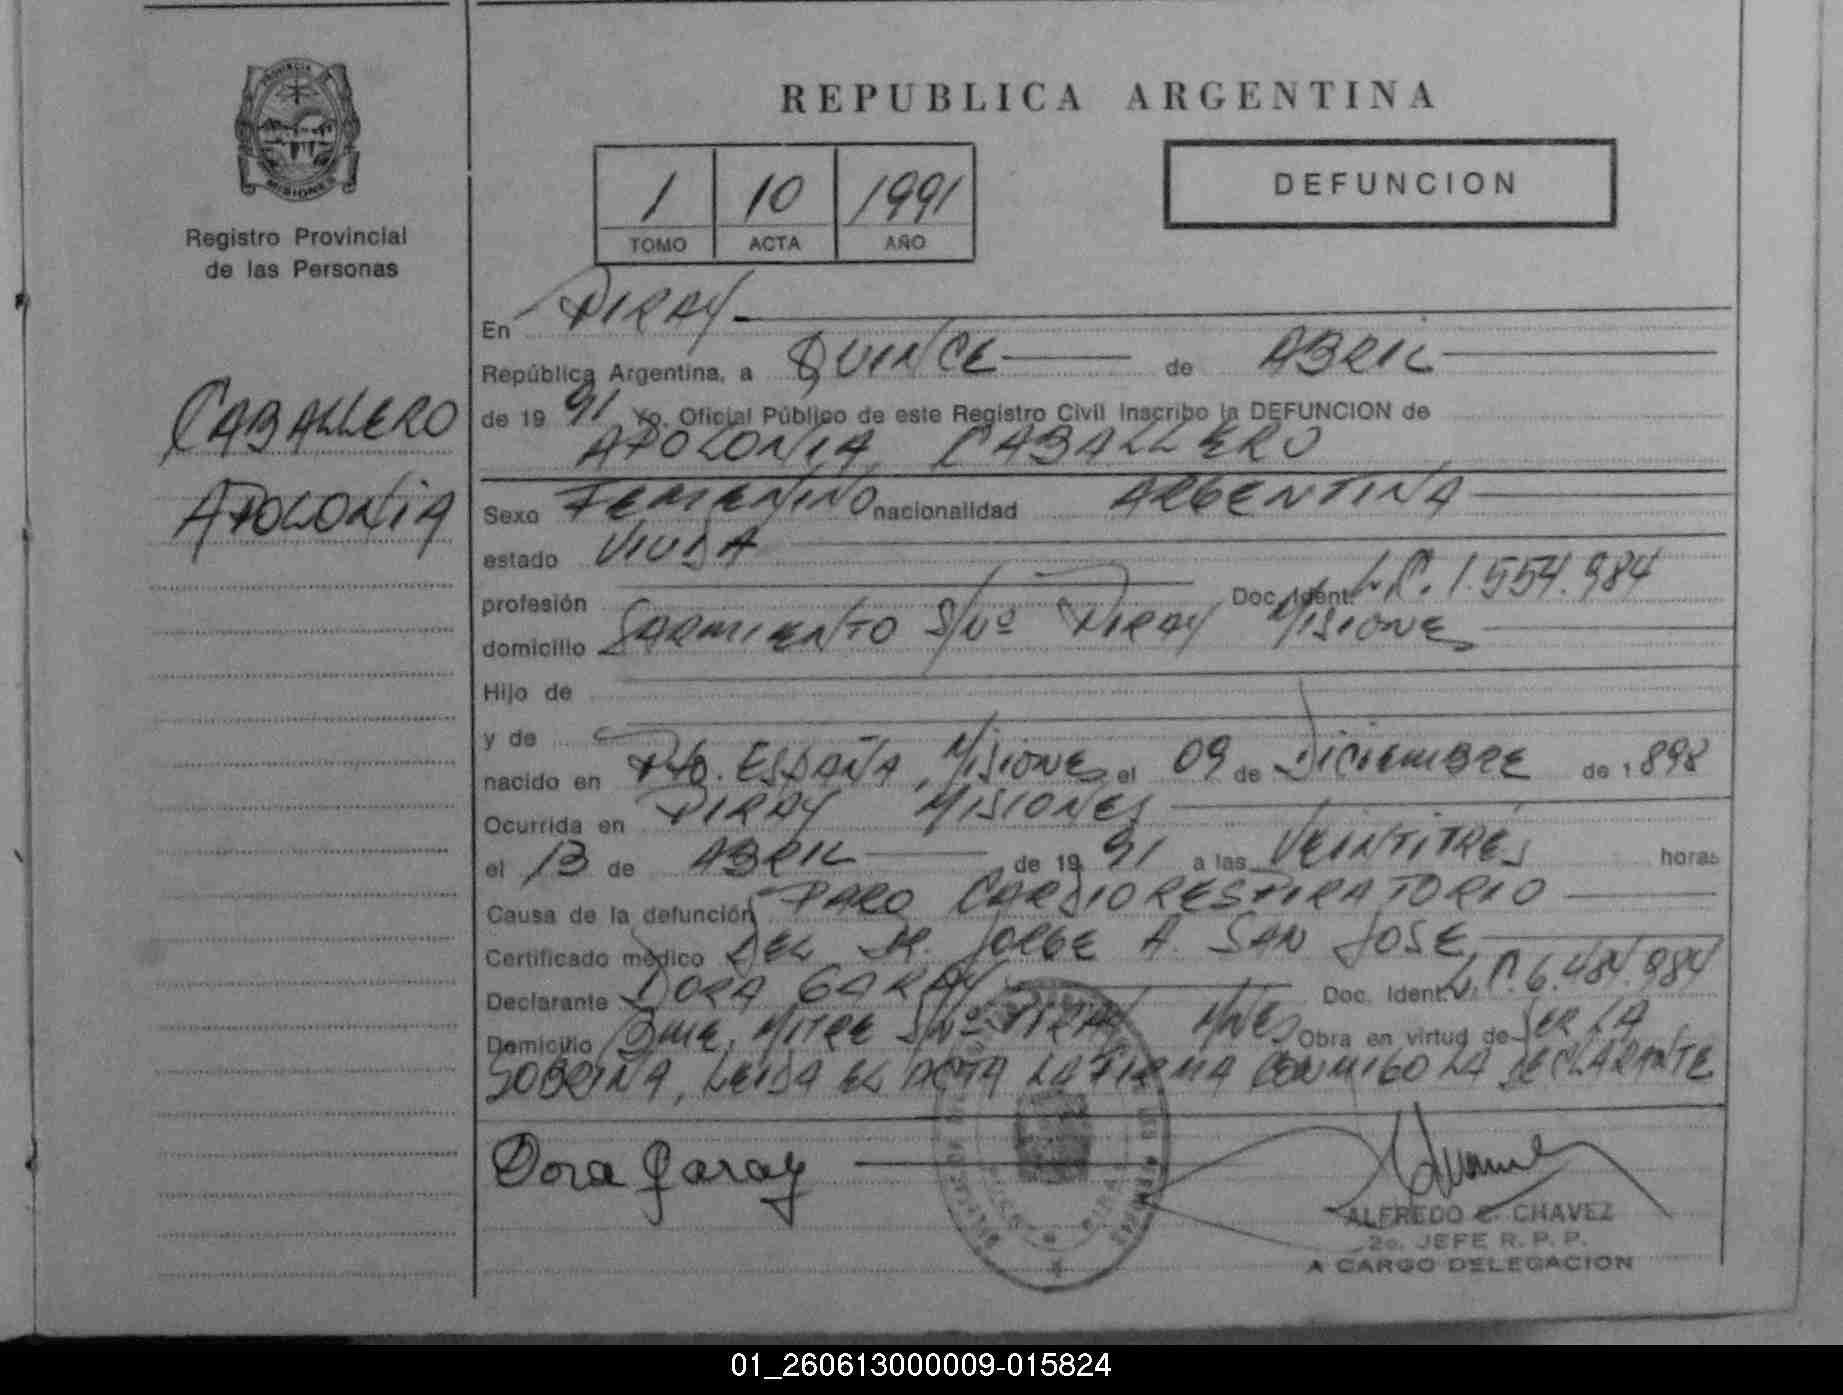 PROVINCIA DE
MISIONES
Registro Provincial
de las Personas
CABALLERO
APOLONIA
REPUBLICA ARGENTINA
1 10 1991
TOMO ACTA AÑO
DEFUNCION
En PIRAY
República Argentina, a QUINCE de ABRIL
de 19 91 Yo, Oficial Público de este Registro Civil inscribo la DEFUNCION de
APOLONIA CABALLERO
Sexo FEMENINO nacionalidad ARGENTINA
estado VIUDA
profesión Doc. Ident. L.C. 1.554.984
domicilio SARMIENTO S/Nº PIRAY MISIONES
Hijo de
y de
nacido en Pto. ESPAÑA, MISIONES el 09 de DICIEMBRE de 1898
Ocurrida en PIRAY MISIONES
el 13 de ABRIL de 19 91 a las VEINTITRES horas
Causa de la defunción PARO CARDIORESPIRATORIO
Certificado médico DEL DR. JORGE A. SAN JOSE
Declarante DORA GARAY Doc. Ident. L.C. 6.484.984
Domicilio Bme. MITRE S/Nº PIRAY MNES Obra en virtud de SER LA
SOBRINA, LEIDA EL ACTA LA FIRMA CONMIGO LA DECLARANTE
Dora Garay
ALFREDO C. CHAVEZ
2o. JEFE R. P. P.
A CARGO DELEGACION
01_260613000009-015824